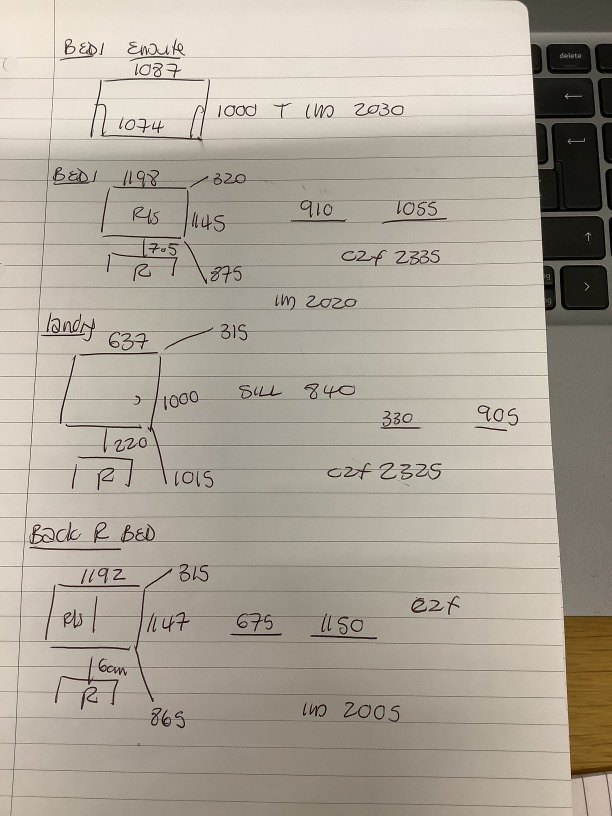 BED1 Ensuite
1087
1074 1000 T IW 2030
BED1 1198 320
RB 1145 910 1055
705 C2F 2335
R 875
IW 2020
landry 637 315
1000 SILL 840
330 905
220
R 1015 C2F 2325
BACK R BED
1192 315
RB 1147 675 1150 C2F
6cm
R 865 IW 2005